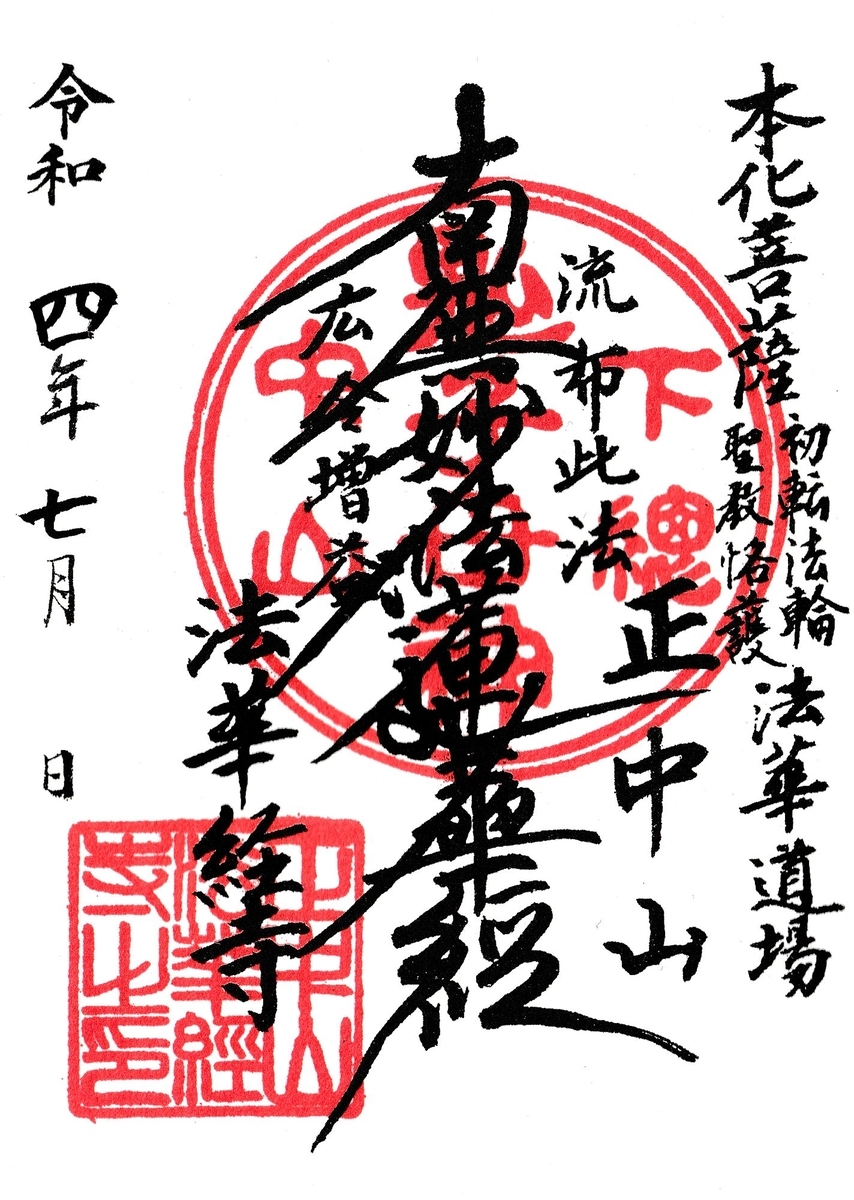 本化菩薩
初転法輪
聖教恪護
法華道場
正中山
流布此法
南無妙法蓮華経
広令増益
法華経寺
令和四年七月 日
下總
中山
正中山
法華經
寺之印